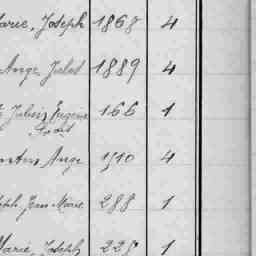 Marie, Joseph 1868 4
Ange Jules 1889 4
Jules Eugène 166 1
Ange 1510 4
Joseph Jean Marie 288 1
Marie, Joseph 228 1